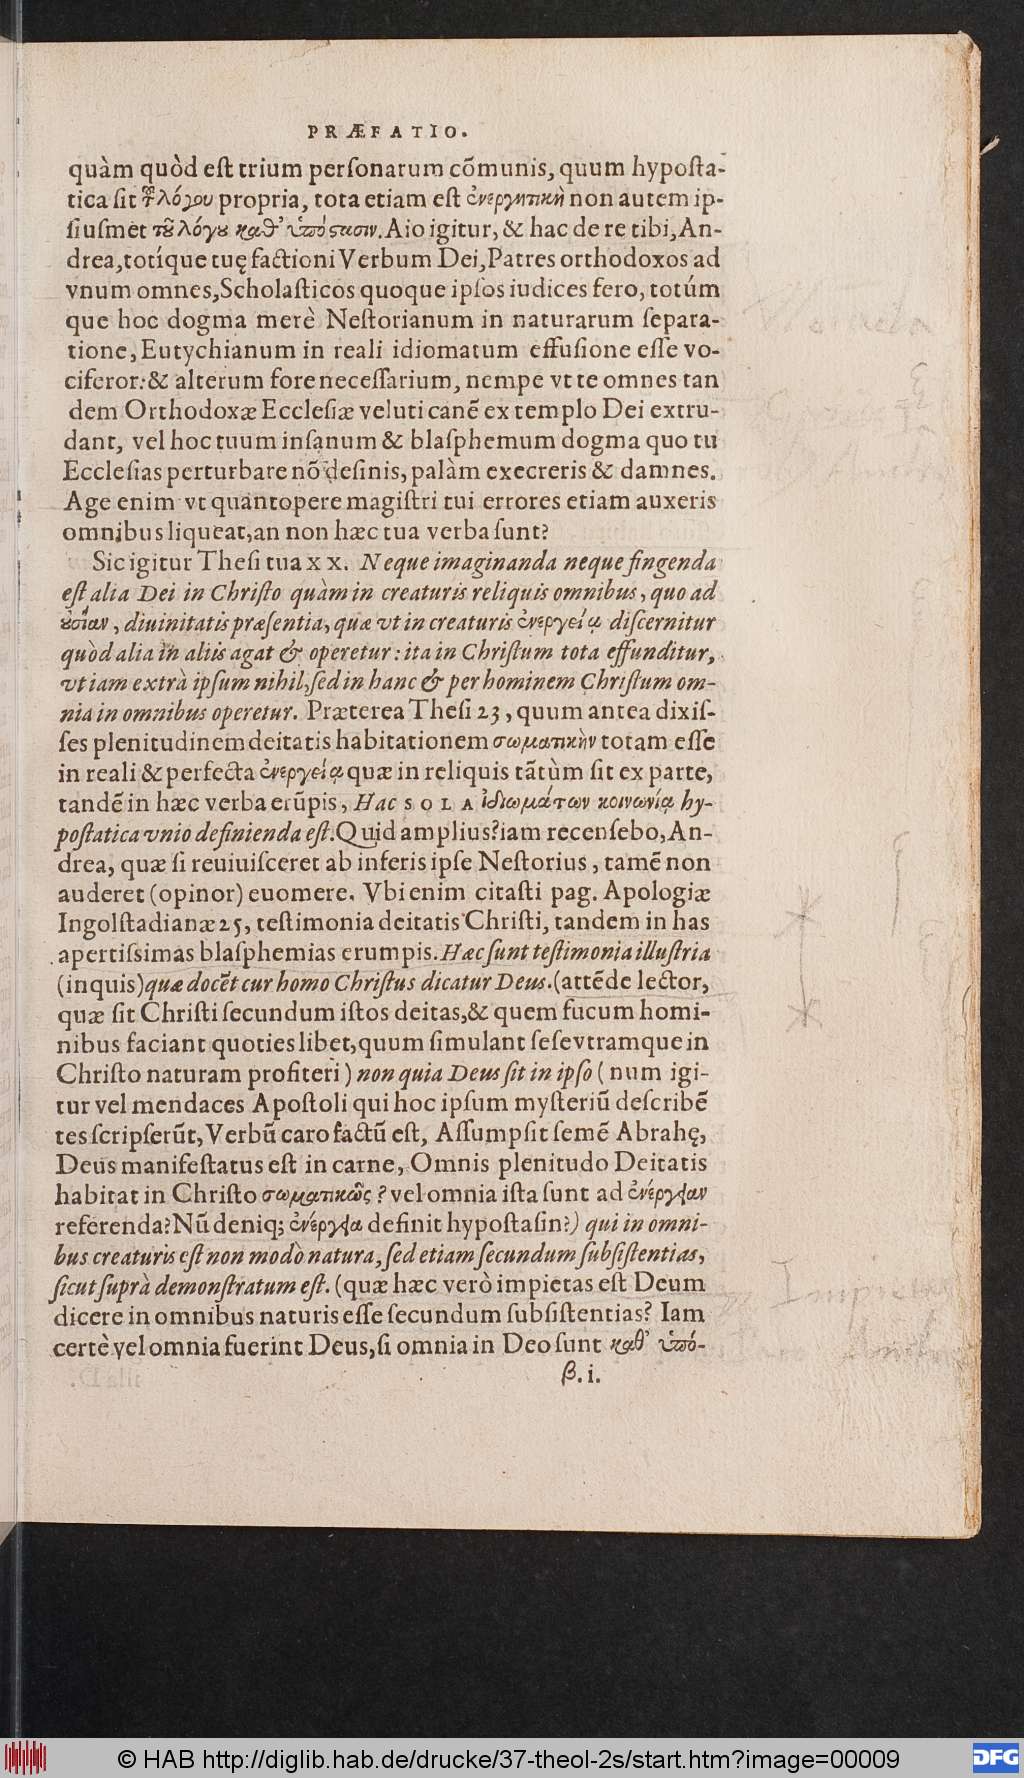 PRÆFATIO.
quàm quòd eſt trium perſonarum cõmunis, quum hypoſta-
tica ſit τῦ λόγου propria, tota etiam eſt ἐνεργητικὴ non autem ip-
ſiuſmet τοῦ λόγου καθ' ὑπόστασιν. Aio igitur, & hac de re tibi, An-
drea, totíque tuę factioni Verbum Dei, Patres orthodoxos ad
vnum omnes, Scholaſticos quoque ipſos iudices fero, totúm
que hoc dogma merè Neſtorianum in naturarum ſepara-
tione, Eutychianum in reali idiomatum effuſione eſſe vo-
ciferor: & alterum fore neceſſarium, nempe vt te omnes tan
dem Orthodoxæ Eccleſiæ veluti canẽ ex templo Dei extru-
dant, vel hoc tuum inſanum & blaſphemum dogma quo tu
Eccleſias perturbare nõ deſinis, palàm execreris & damnes.
Age enim vt quantopere magiſtri tui errores etiam auxeris
omnibus liqueat, an non hæc tua verba ſunt?
Sic igitur Theſi tua xx. Neque imaginanda neque fingenda
eſt alia Dei in Chriſto quàm in creaturis reliquis omnibus, quo ad
οὐσίαν, diuinitatis præſentia, quæ vt in creaturis ἐνεργείᾳ diſcernitur
quòd alia in aliis agat & operetur: ita in Chriſtum tota effunditur,
vt iam extrà ipſum nihil, ſed in hanc & per hominem Chriſtum om-
nia in omnibus operetur. Præterea Theſi 23, quum antea dixiſ-
ſes plenitudinem deitatis habitationem σωματικὴν totam eſſe
in reali & perfecta ἐνεργείᾳ quæ in reliquis tãtùm ſit ex parte,
tandẽ in hæc verba erũpis, Hac SOLA ἰδιωμάτων κοινωνίᾳ hy-
poſtatica vnio definienda eſt. Quid amplius? iam recenſebo, An-
drea, quæ ſi reuiuiſceret ab inferis ipſe Neſtorius, tamẽ non
auderet (opinor) euomere. Vbi enim citaſti pag. Apologiæ
Ingolſtadianæ 25, teſtimonia deitatis Chriſti, tandem in has
apertiſsimas blaſphemias erumpis. Hæc ſunt teſtimonia illuſtria
(inquis) quæ docẽt cur homo Chriſtus dicatur Deus. (attẽde lector,
quæ ſit Chriſti ſecundum iſtos deitas, & quem fucum homi-
nibus faciant quoties libet, quum ſimulant ſeſe vtramque in
Chriſto naturam profiteri) non quia Deus ſit in ipſo (num igi-
tur vel mendaces Apoſtoli qui hoc ipſum myſteriũ deſcribẽ
tes ſcripſerũt, Verbũ caro factũ eſt, Aſſumpſit ſemẽ Abrahę,
Deus manifeſtatus eſt in carne, Omnis plenitudo Deitatis
habitat in Chriſto σωματικῶς? vel omnia iſta ſunt ad ἐνέργειαν
referenda? Nũ deniq; ἐνέργεια definit hypoſtaſin?) qui in omni-
bus creaturis eſt non modò natura, ſed etiam ſecundum ſubſiſtentias,
ſicut ſuprà demonſtratum eſt. (quæ hæc verò impietas eſt Deum
dicere in omnibus naturis eſſe ſecundum ſubſiſtentias? Iam
certè vel omnia fuerint Deus, ſi omnia in Deo ſunt καθ' ὑπό-
β. i.
© HAB http://diglib.hab.de/drucke/37-theol-2s/start.htm?image=00009
DFG